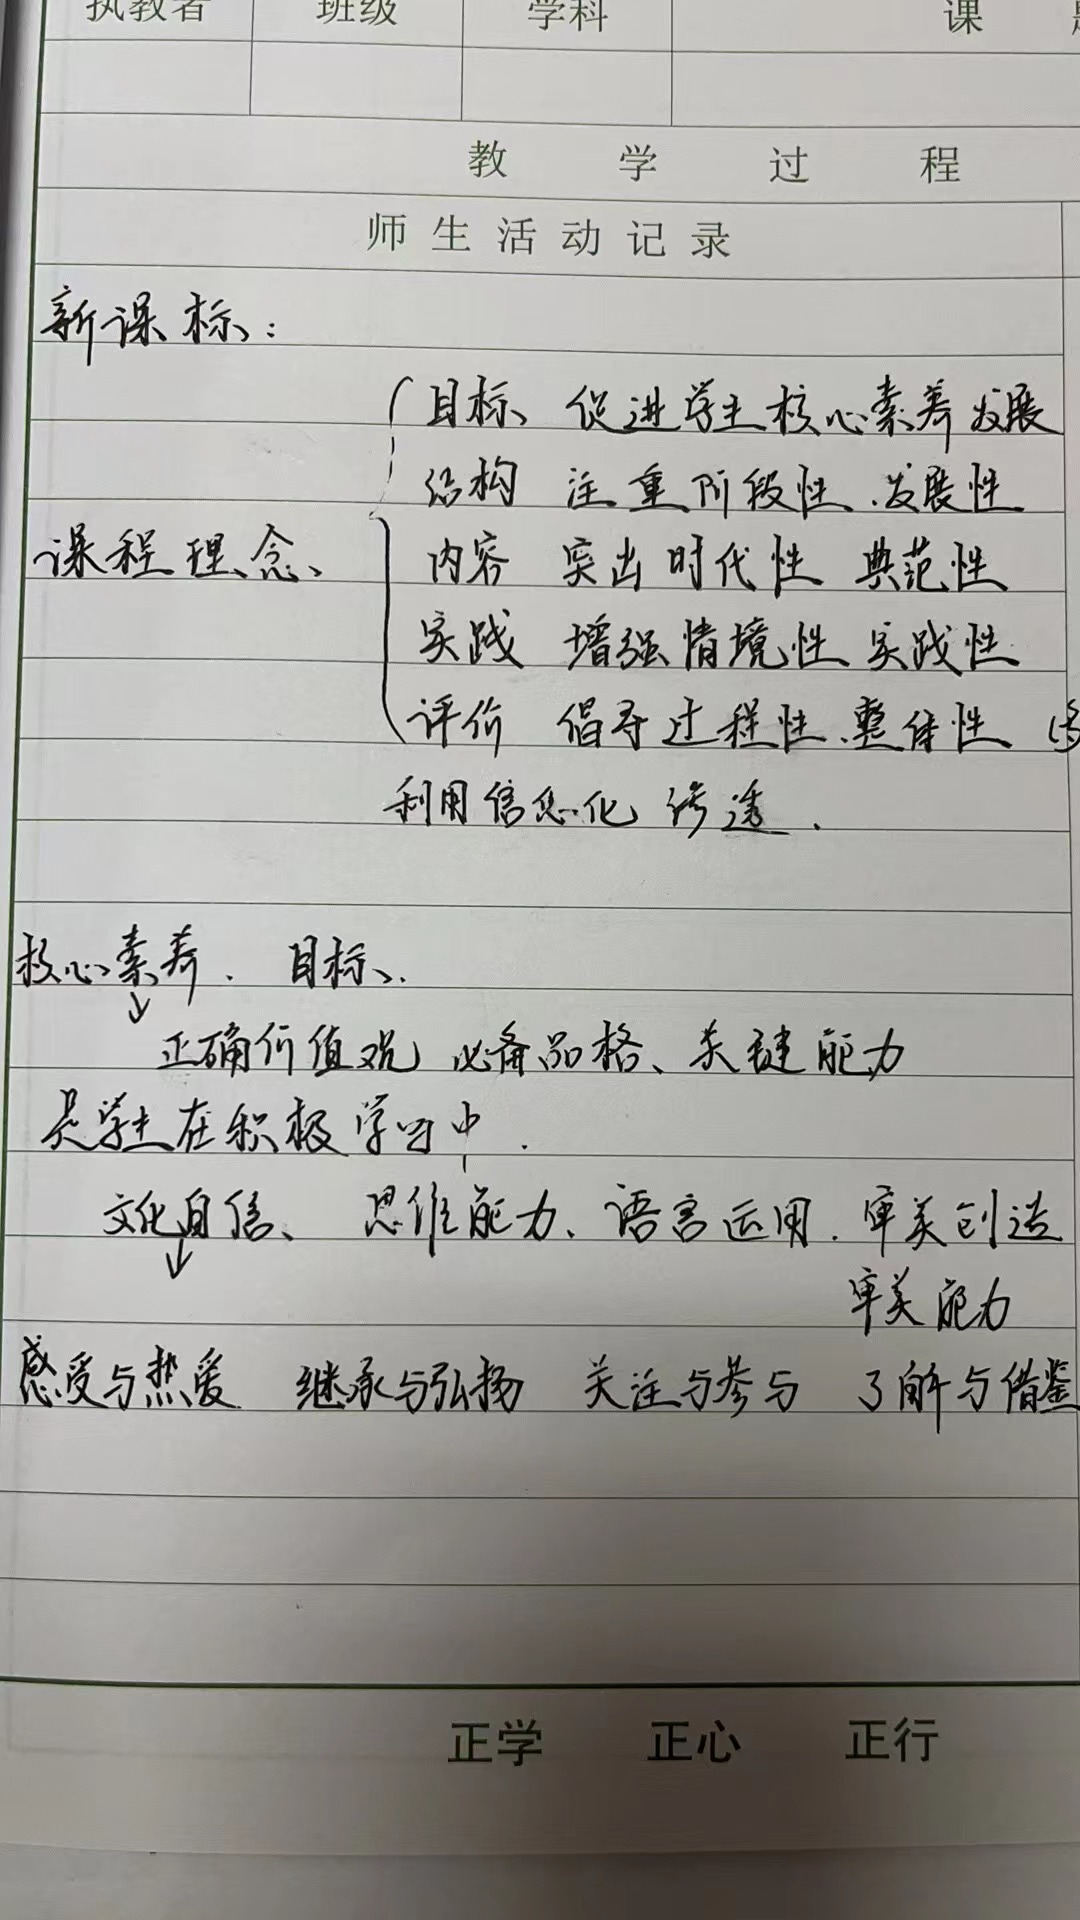 执教者 班级 学科 课
教学过程
师生活动记录
新课标：
目标 促进学生核心素养发展
结构 注重阶段性、发展性
课程理念 内容 突出时代性 典范性
实践 增强情境性 实践性
评价 倡导过程性、整体性
利用信息化 渗透.
核心素养. 目标.
↓
正确价值观 必备品格、关键能力
是学生在积极学习中.
文化自信、 思维能力、语言运用. 审美创造
↓ 审美能力
感受与热爱 继承与弘扬 关注与参与 了解与借鉴
正学 正心 正行